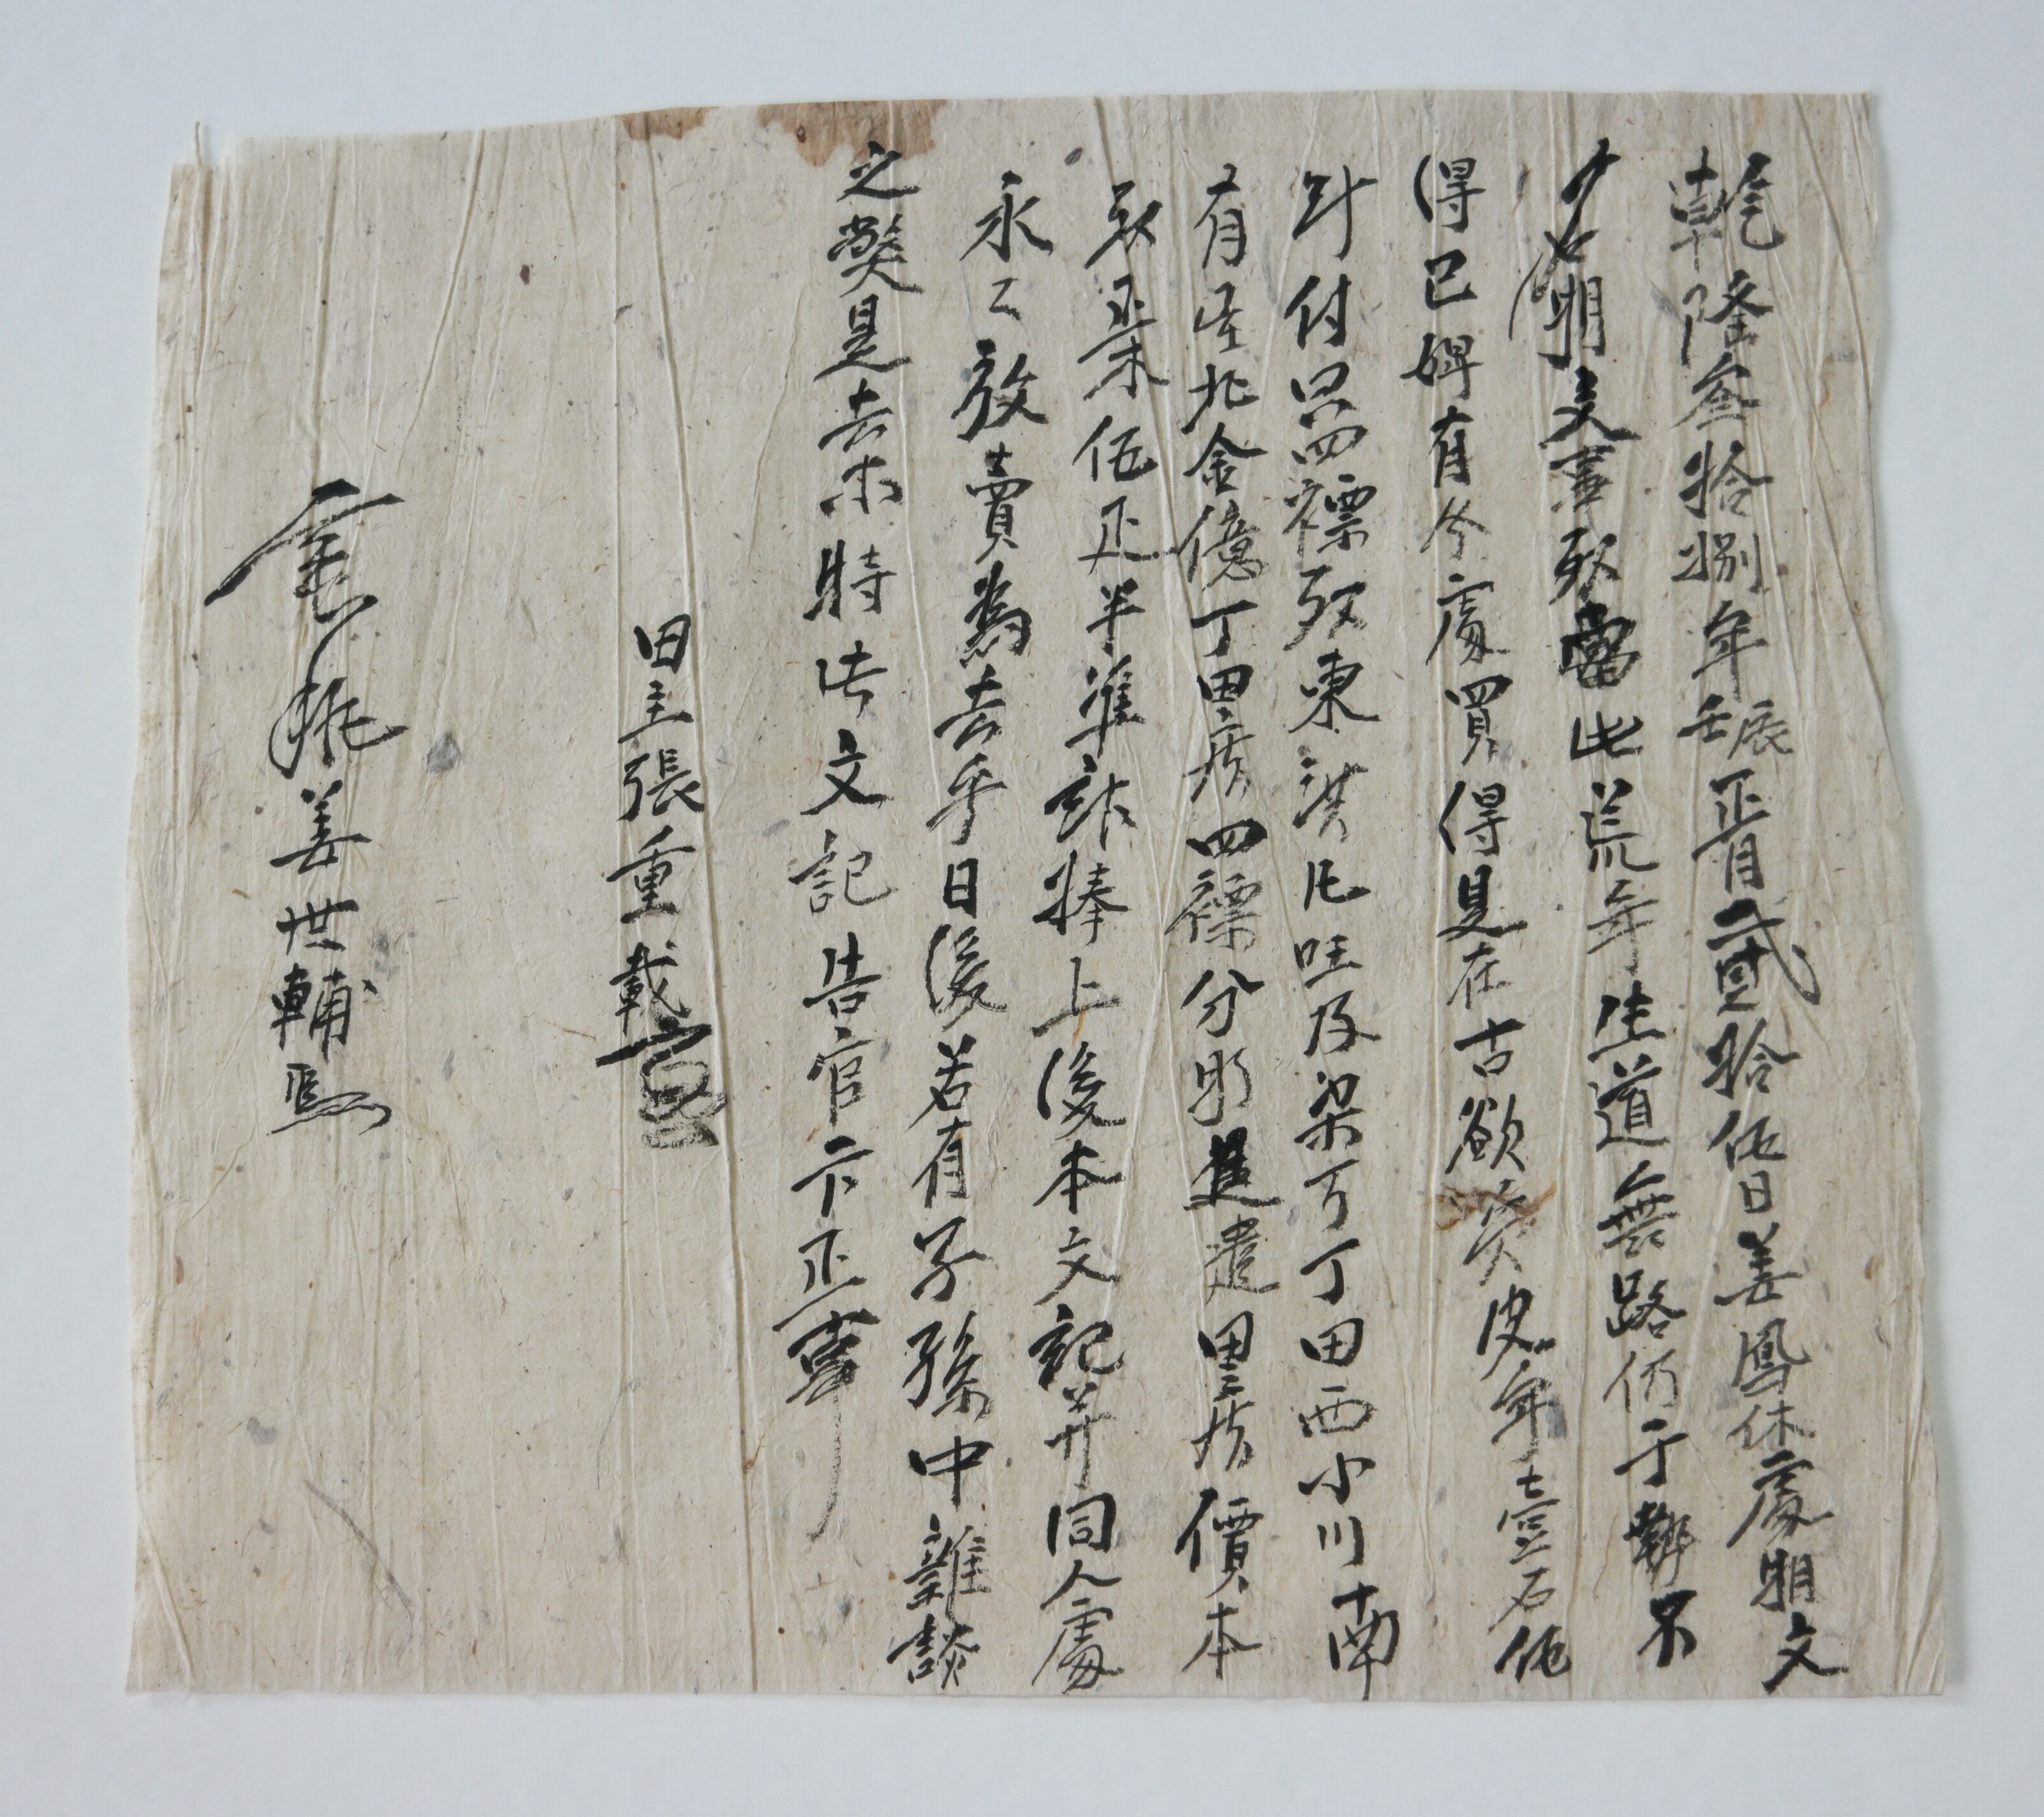 乾隆叁拾捌年壬辰正月貳拾伍日姜鳳休處明文
明文事段當此荒年生道無路仍于勢不
得已婢有今處買得是在古欲 皮年壹石伍
斗付只四標段東洪 及梁 丁田西小川南
有 北金億丁田 四標分明 遣 價本
段 木伍疋半準 捧上後本文記并同人處
永永放賣爲去乎日後若有子孫中雜談
之弊是去等將此文記告官卞正事
田主張重載
執姜世輔